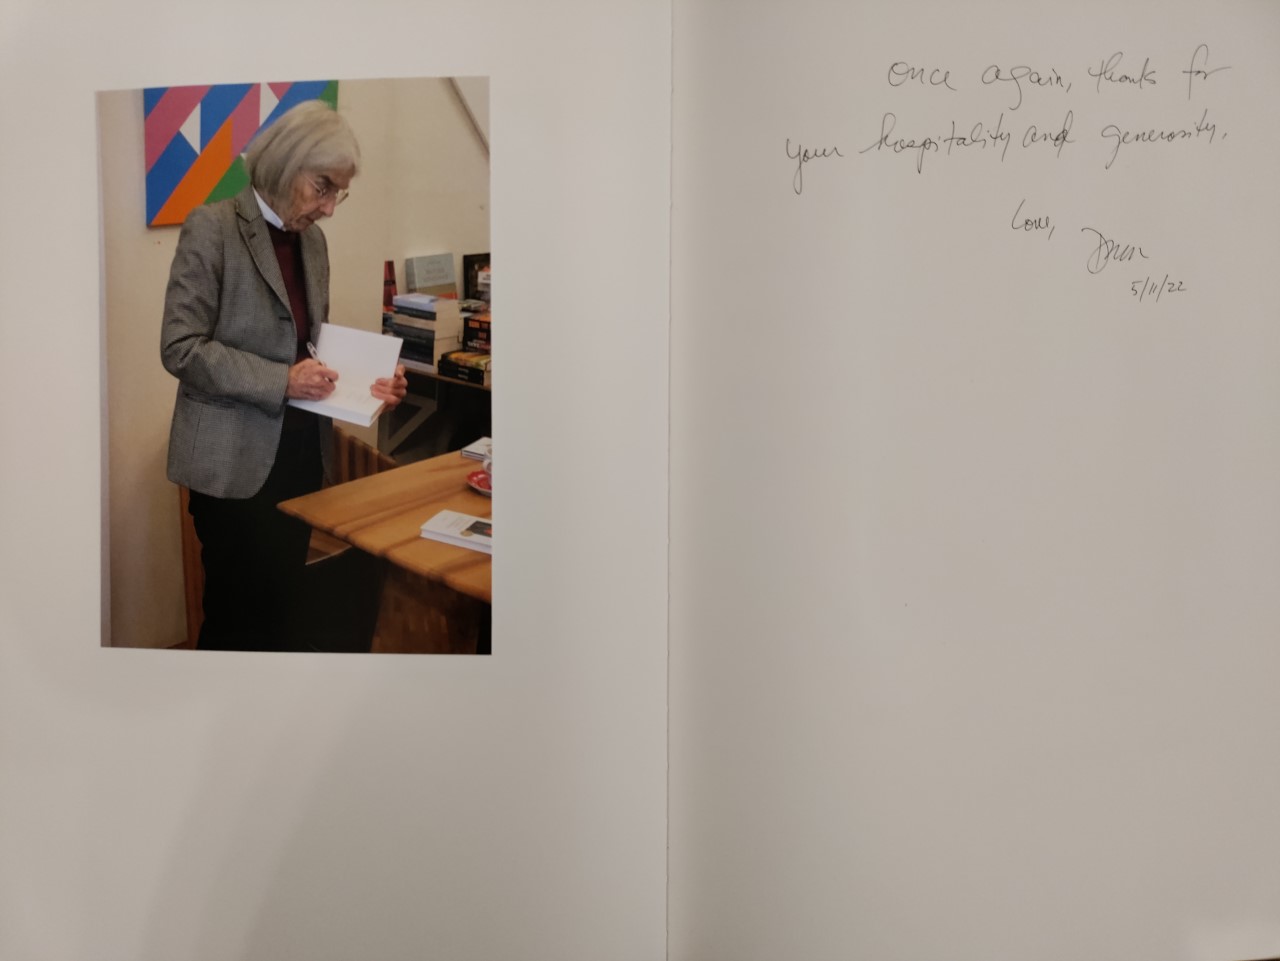 Once again, thanks for
your hospitality and generosity.
Love,
5/11/22